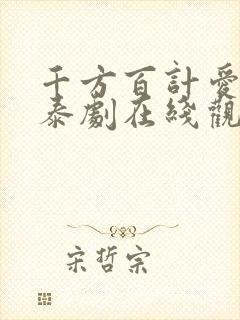 千方百計愛
泰劇在綫觀
宋哲宗